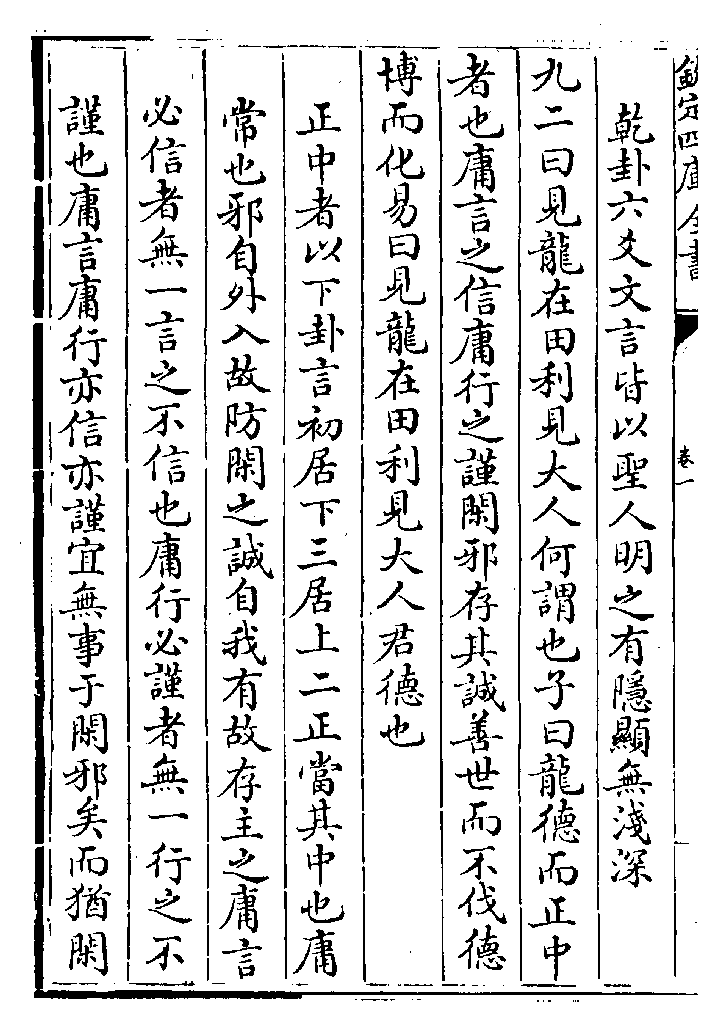 欽定四庫全書
卷一
乾卦六爻文言皆以聖人明之有隱顯無淺深
九二曰見龍在田利見大人何謂也子曰龍德而正中
者也庸言之信庸行之謹閑邪存其誠善世而不伐德
博而化易曰見龍在田利見大人君德也
正中者以下卦言初居下三居上二正當其中也庸
常也邪自外入故防閑之誠自我有故存主之庸言
必信者無一言之不信也庸行必謹者無一行之不
謹也庸言庸行亦信亦謹宜無事于閑邪矣而猶閑